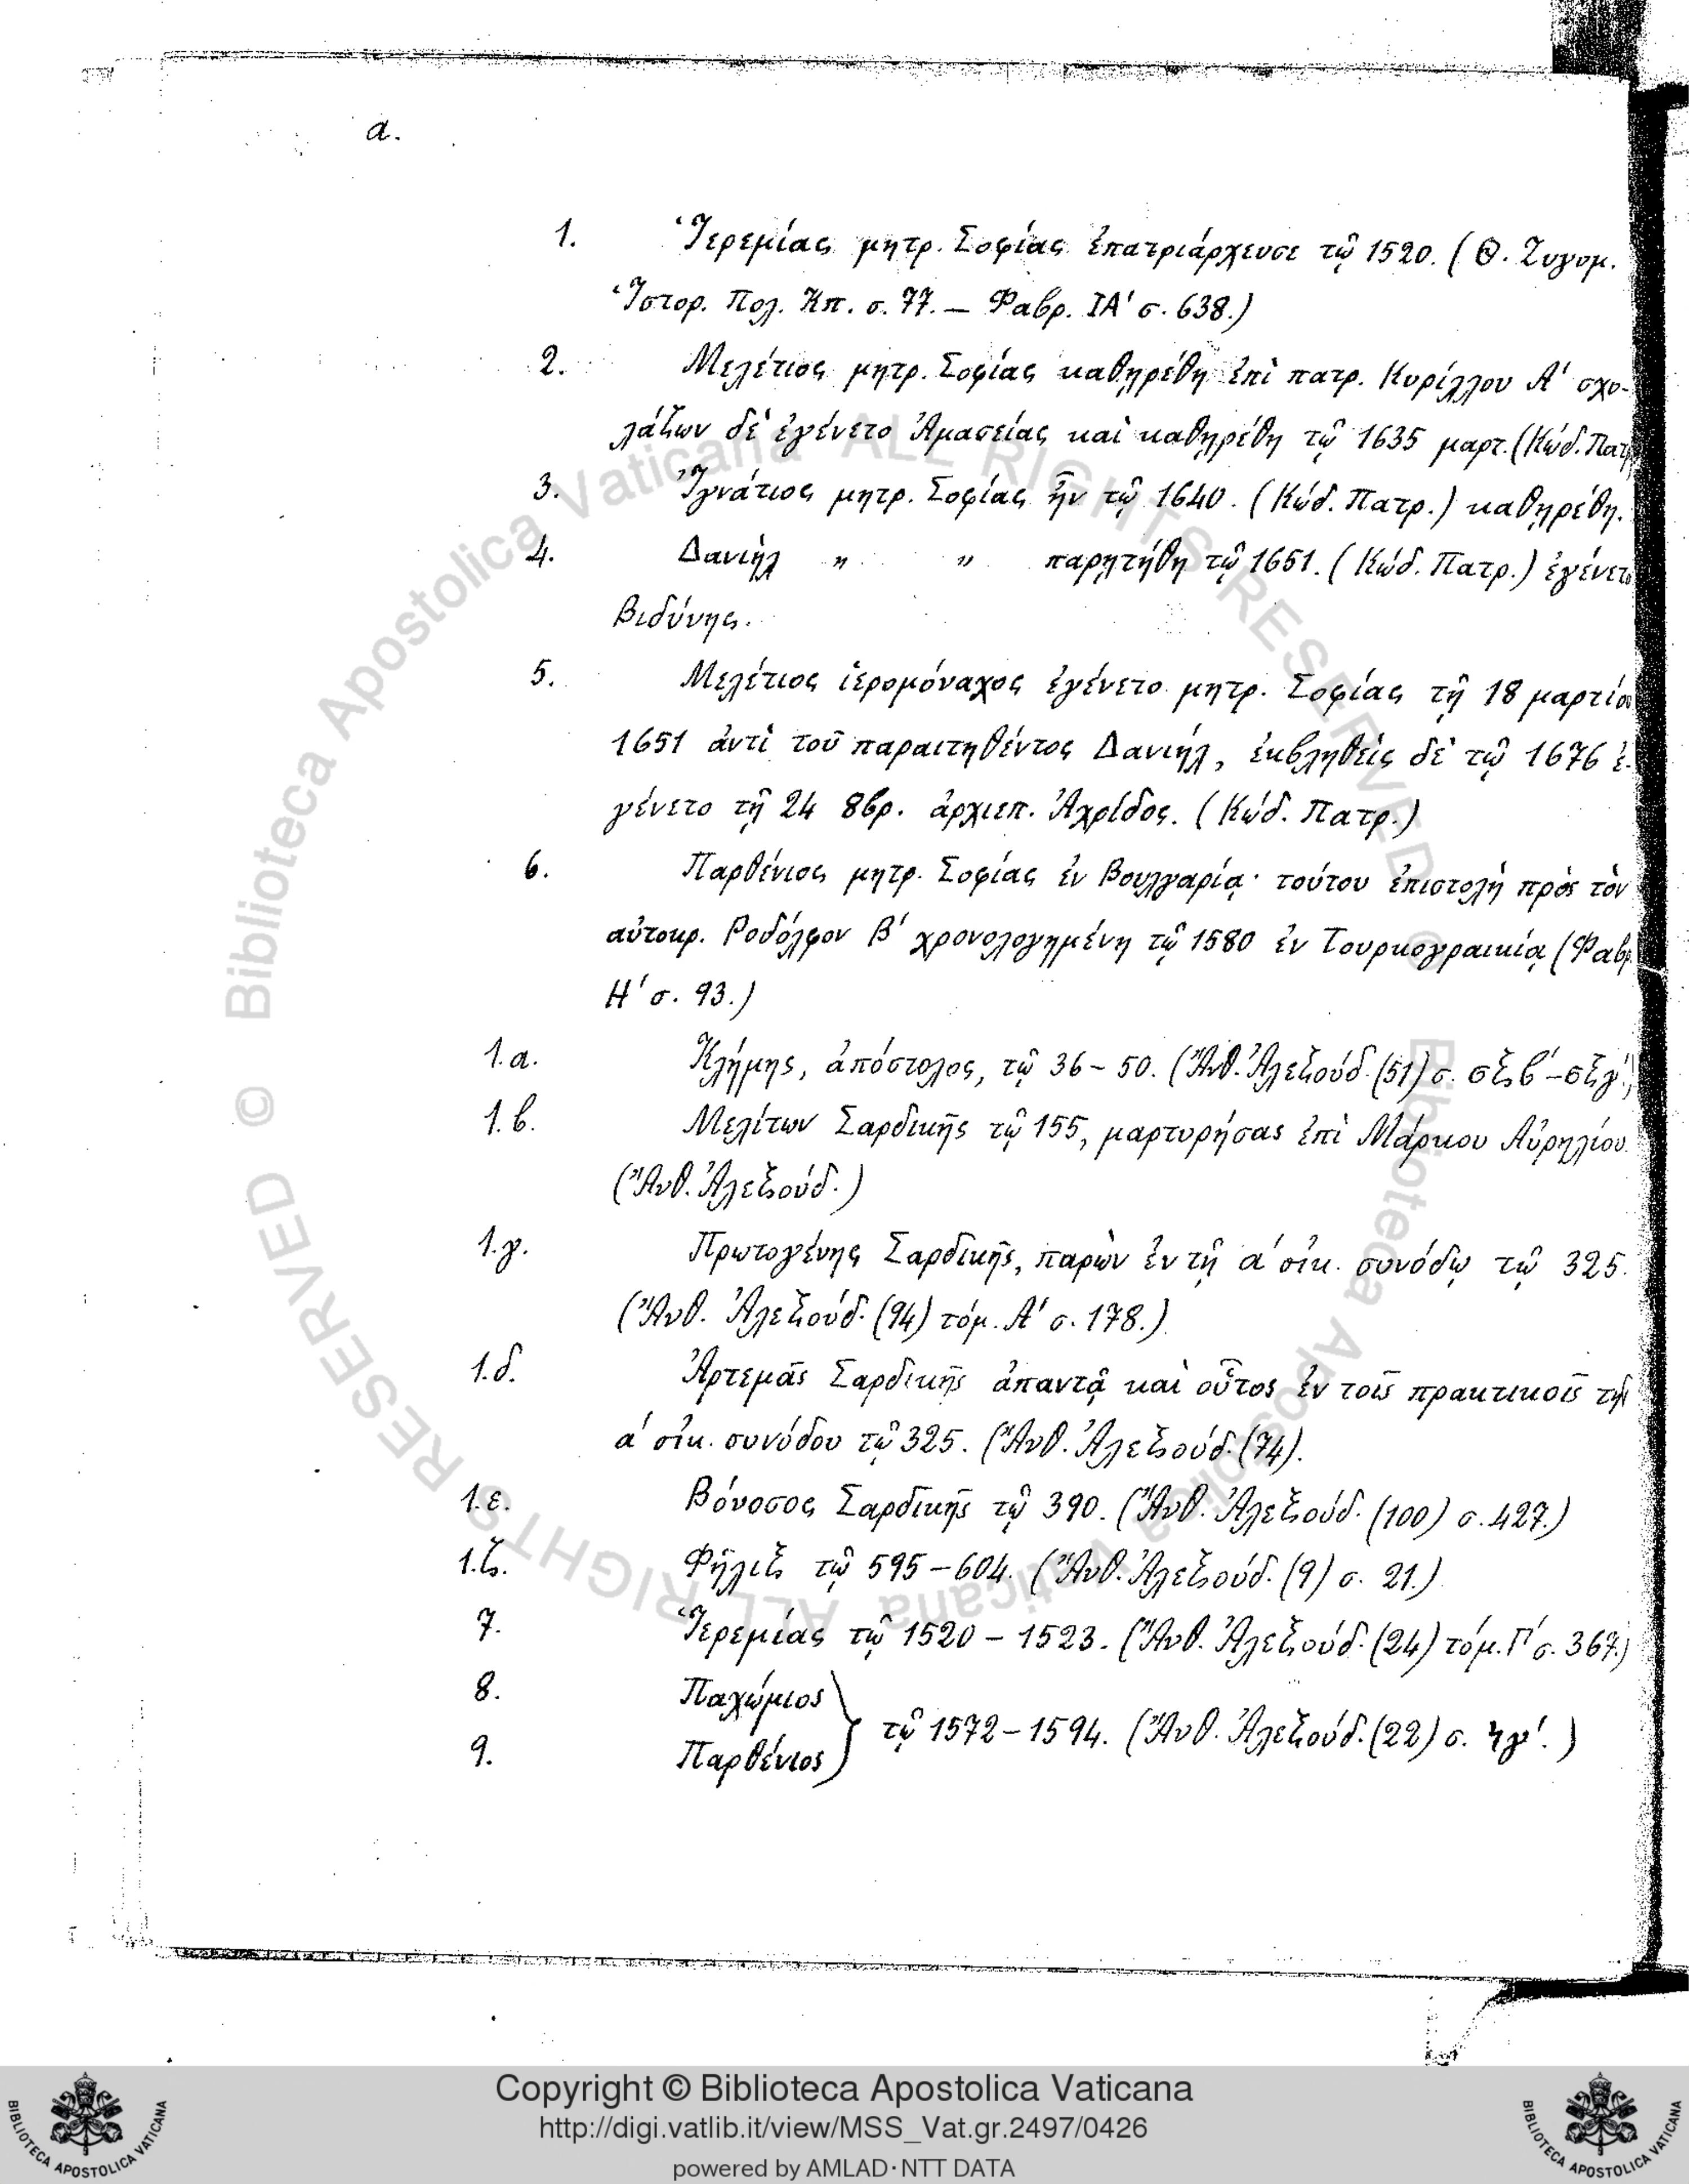 α.
1. Ἱερεμίας μητρ. Σοφίας ἐπατριάρχευσε τῷ 1520. (Θ. Ζυγομ.
Ἱστορ. Πολ. Κπ. σ. 77. — Φαβρ. ΙΑ' σ. 638.)
2. Μελέτιος μητρ. Σοφίας καθῃρέθη ἐπὶ πατρ. Κυρίλλου Α' σχο-
λάζων δὲ ἐγένετο Ἀμασείας καὶ καθῃρέθη τῷ 1635 μαρτ. (Κώδ. Πατρ
3. Ἰγνάτιος μητρ. Σοφίας ἦν τῷ 1640. (Κώδ. Πατρ.) καθῃρέθη.
4. Δανιὴλ " " παρῃτήθη τῷ 1651. (Κώδ. Πατρ.) ἐγένετο
Βιδύνης.
5. Μελέτιος ἱερομόναχος ἐγένετο μητρ. Σοφίας τῇ 18 μαρτίου
1651 ἀντὶ τοῦ παραιτηθέντος Δανιήλ, ἐκβληθεὶς δὲ τῷ 1676 ἐ-
γένετο τῇ 24 8βρ. ἀρχιεπ. Ἀχρίδος. (Κώδ. Πατρ.)
6. Παρθένιος μητρ. Σοφίας ἐν Βουλγαρίᾳ· τούτου ἐπιστολὴ πρὸς τὸν
αὐτοκρ. Ροδόλφον Β' χρονολογημένη τῷ 1580 ἐν Τουρκογραικίᾳ (Φαβρ
Η' σ. 93.)
1.α. Κλήμης, ἀπόστολος, τῷ 36–50. (Ἄνθ. Ἀλεξούδ. (51) σ. σξβ'–σξγ'.)
1.β. Μελίτων Σαρδικῆς τῷ 155, μαρτυρήσας ἐπὶ Μάρκου Αὐρηλίου.
(Ἄνθ. Ἀλεξούδ.)
1.γ. Πρωτογένης Σαρδικῆς, παρὼν ἐν τῇ α' οἰκ. συνόδῳ τῷ 325.
(Ἄνθ. Ἀλεξούδ. (94) τόμ. Α' σ. 178.)
1.δ. Ἀρτεμᾶς Σαρδικῆς ἀπαντᾷ καὶ οὗτος ἐν τοῖς πρακτικοῖς τῆς
α' οἰκ. συνόδου τῷ 325. (Ἄνθ. Ἀλεξούδ. (74).
1.ε. Βόνοσος Σαρδικῆς τῷ 390. (Ἄνθ. Ἀλεξούδ. (100) σ. 427.)
1.ζ. Φῆλιξ τῷ 595–604. (Ἄνθ. Ἀλεξούδ. (9) σ. 21.)
7. Ἱερεμίας τῷ 1520–1523. (Ἄνθ. Ἀλεξούδ. (24) τόμ. Γ' σ. 367.)
8. Παχώμιος
τῷ 1572–1594. (Ἄνθ. Ἀλεξούδ. (22) σ. ϟγ'.)
9. Παρθένιος
© Biblioteca Apostolica Vaticana ALL RIGHTS RESERVED © Biblioteca Apostolica Vaticana ALL RIGHTS RESERVED
Copyright © Biblioteca Apostolica Vaticana
http://digi.vatlib.it/view/MSS_Vat.gr.2497/0426
powered by AMLAD·NTT DATA
BIBLIOTECA APOSTOLICA VATICANA
BIBLIOTECA APOSTOLICA VATICANA